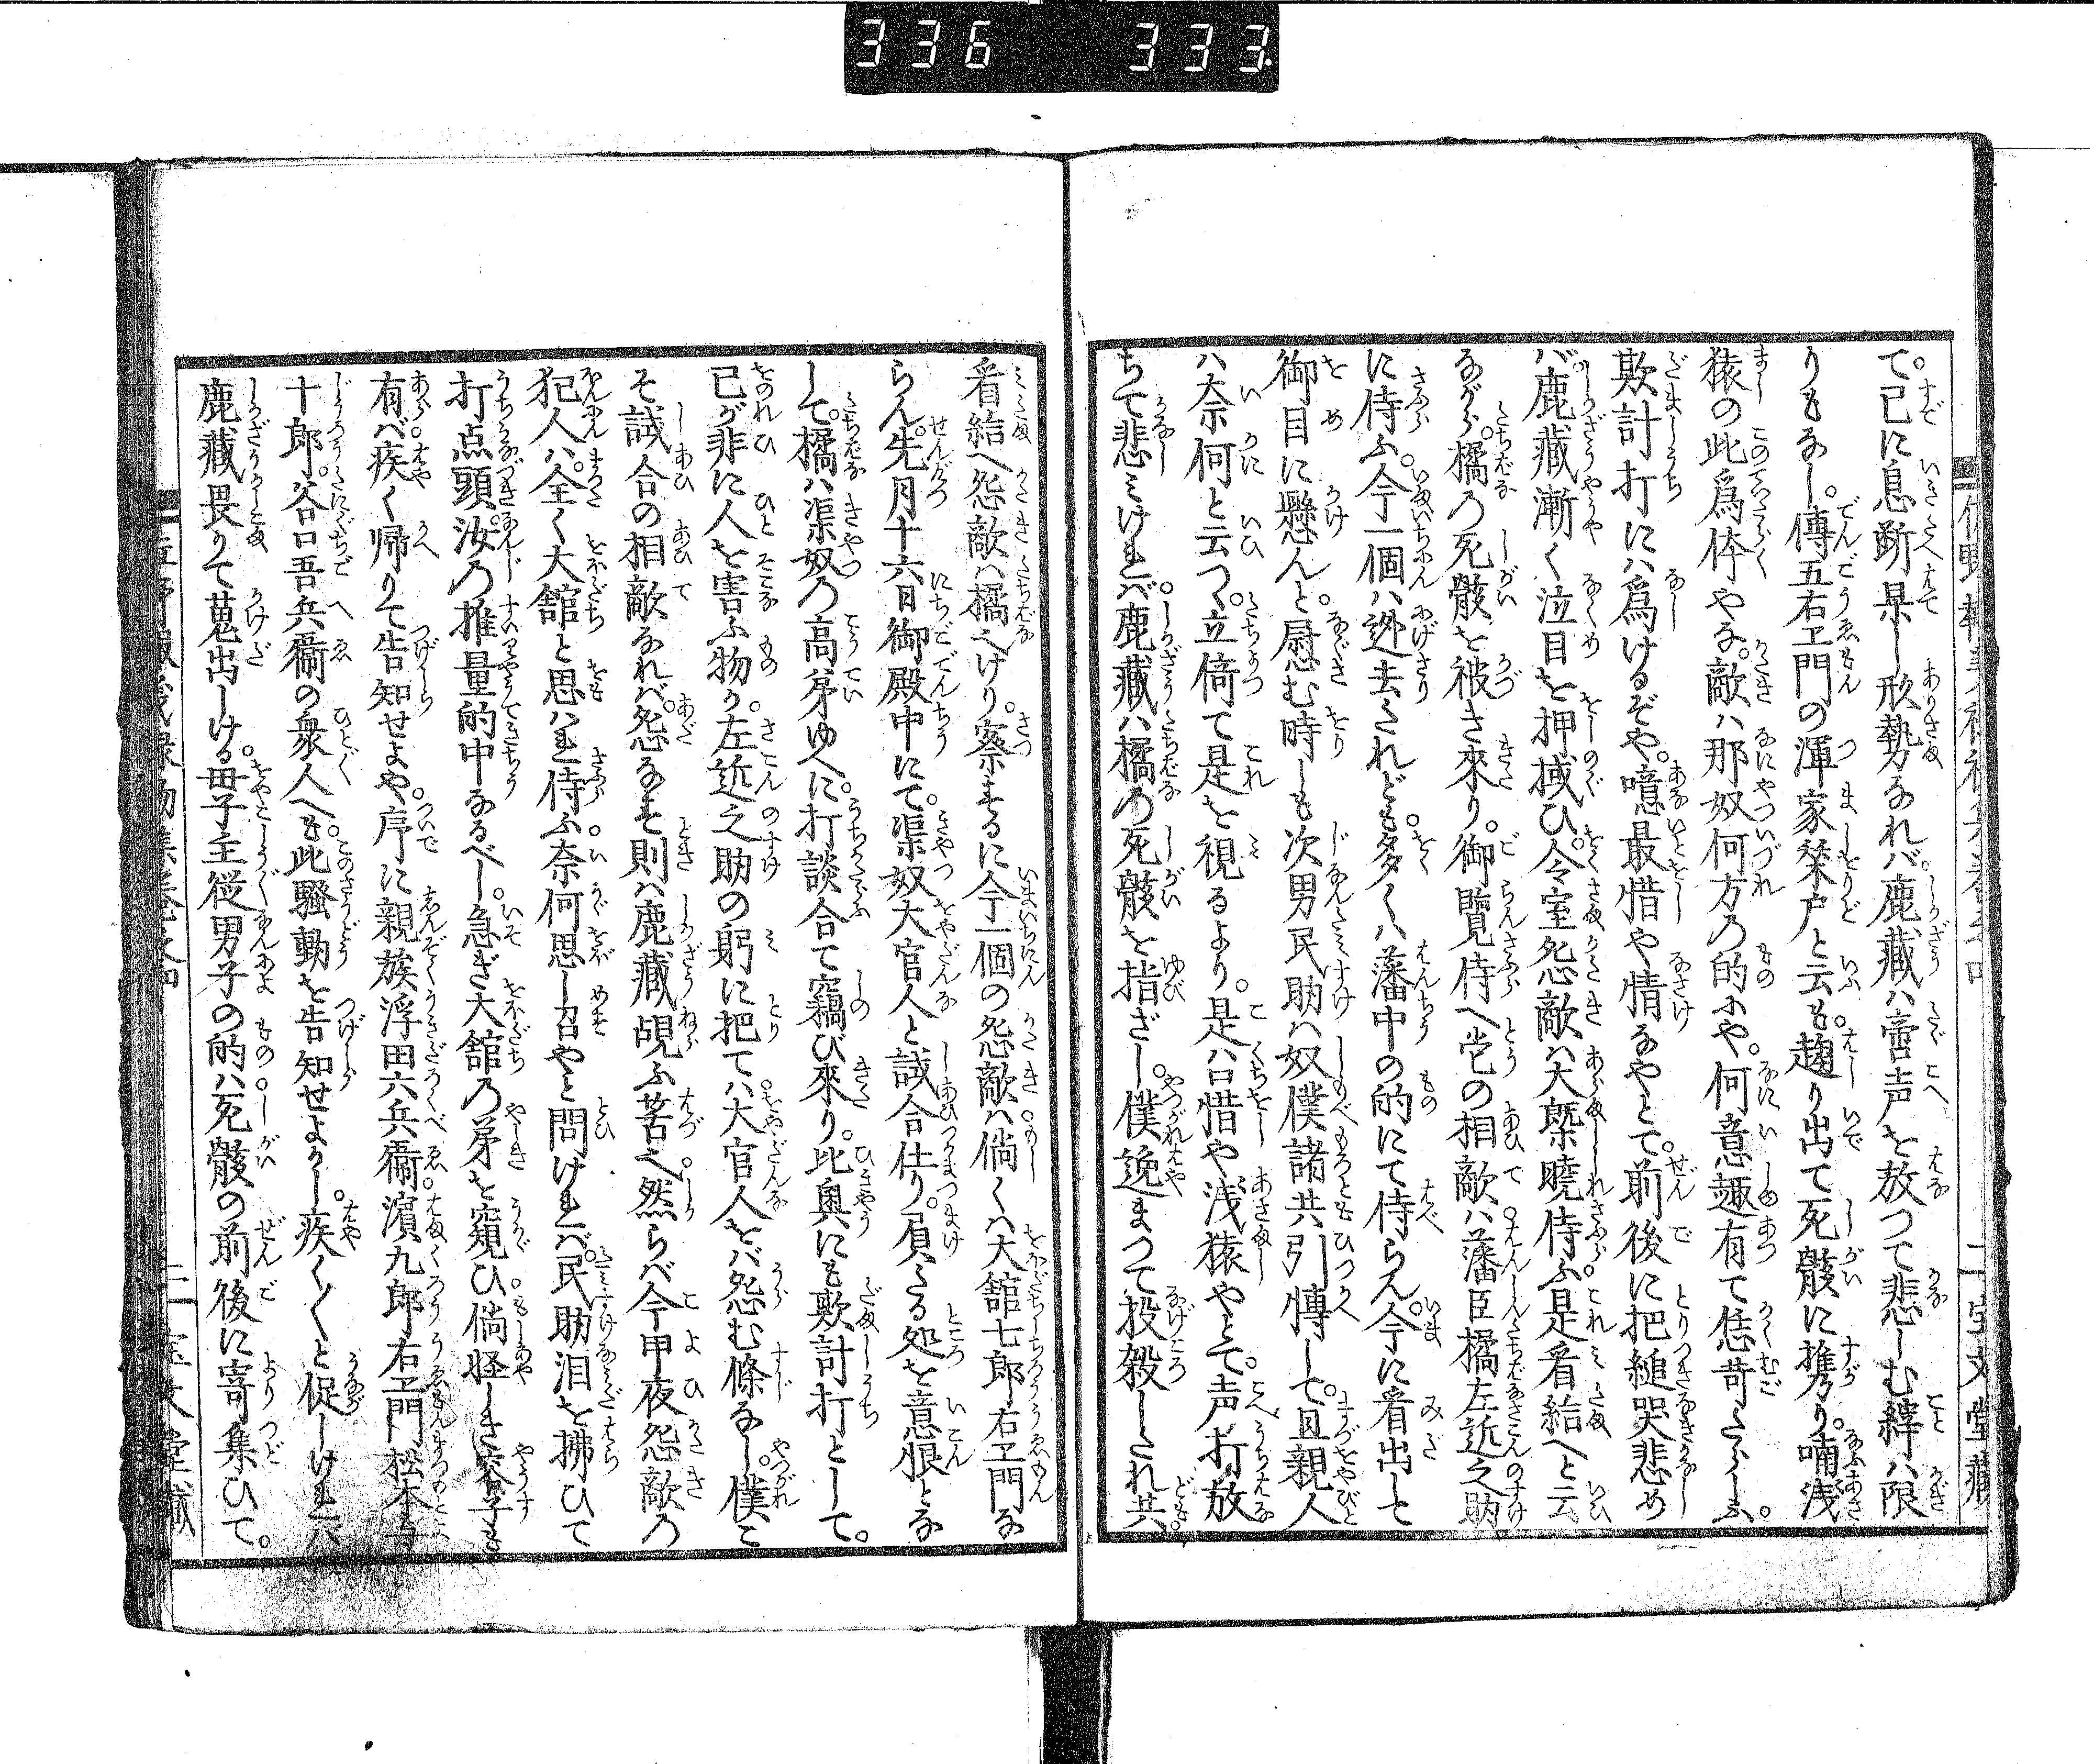 336 333
て。已に息断果し形勢なれバ鹿藏ハ啻声を放つて悲しむ縡ハ限
りもなし。傳五右エ門の渾家栞戸と云も。趨り出て死骸に携り。喃浅
猿の此爲体やな。敵ハ那奴何方の的にや。何意趣有て恁苛たらしふ。
欺計打にハ爲けるぞや。噫最惜や情なやとて。前後に把縋哭悲め
バ。鹿藏漸く泣目を押拭ひ。令室怨敵ハ大槩曉侍ふ。是看結へと云
ながら。橘の死骸を被き來り。御覽侍へ党の相敵ハ。藩臣橘左近之助
に侍ふ。今一個ハ迯去たれども。多くハ藩中の的にて侍らん。今に看出して
御目に懸んと。慰む時しも次男民助ハ奴僕諸共引慱して。且親人
ハ奈何と云つゝ。立倚て是を視るより。是ハ口惜や浅猿やとて。声打放
ちて悲みけれバ。鹿藏ハ橘の死骸を指ざし。僕逸まつて投殺したれ共。
看結へ怨敵ハ橘へけり。察するに今一個の怨敵ハ倘くハ大舘七郎右エ門な
らん。先月十六日御殿中にて。渠奴大官人と誠合仕り。負たる処を意恨となし
して。橘ハ渠奴の高弟ゆへに。打談合て竊び來り。比輿にも欺計打として。
已が非に人を害ふ物か。左近之助の躬に把てハ。大官人をバ怨む條なし。僕こ
そ誠合の相敵なれバ。怨なす則ハ鹿藏覘ふ筈へ。然らバ今甲夜怨敵の
犯人ハ。全く大舘と思ハれ侍ふ。奈何思し召やと問けれバ。民助泪を拂ひて
打点頭。汝の推量的中なるべし。急ぎ大舘の第を窺ひ。倘怪しき容子も
有バ疾く帰りて告知せよや。序に親族浮田六兵衞。濵九郎右エ門松本与
十郎。谷口吾兵衞の衆人へも。此騒動を告知せよかし。疾くくと促しけれバ
鹿藏畏りて蒐出しける。母子主從男子の的ハ。死骸の前後に寄集ひて。
二 宝文堂藏